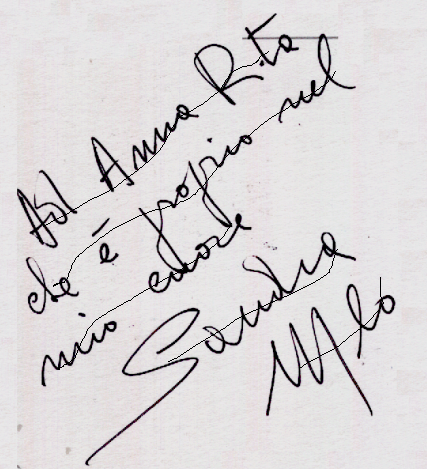 Ad Anna Rita
che è proprio nel
mio cuore
Sandra
Milo